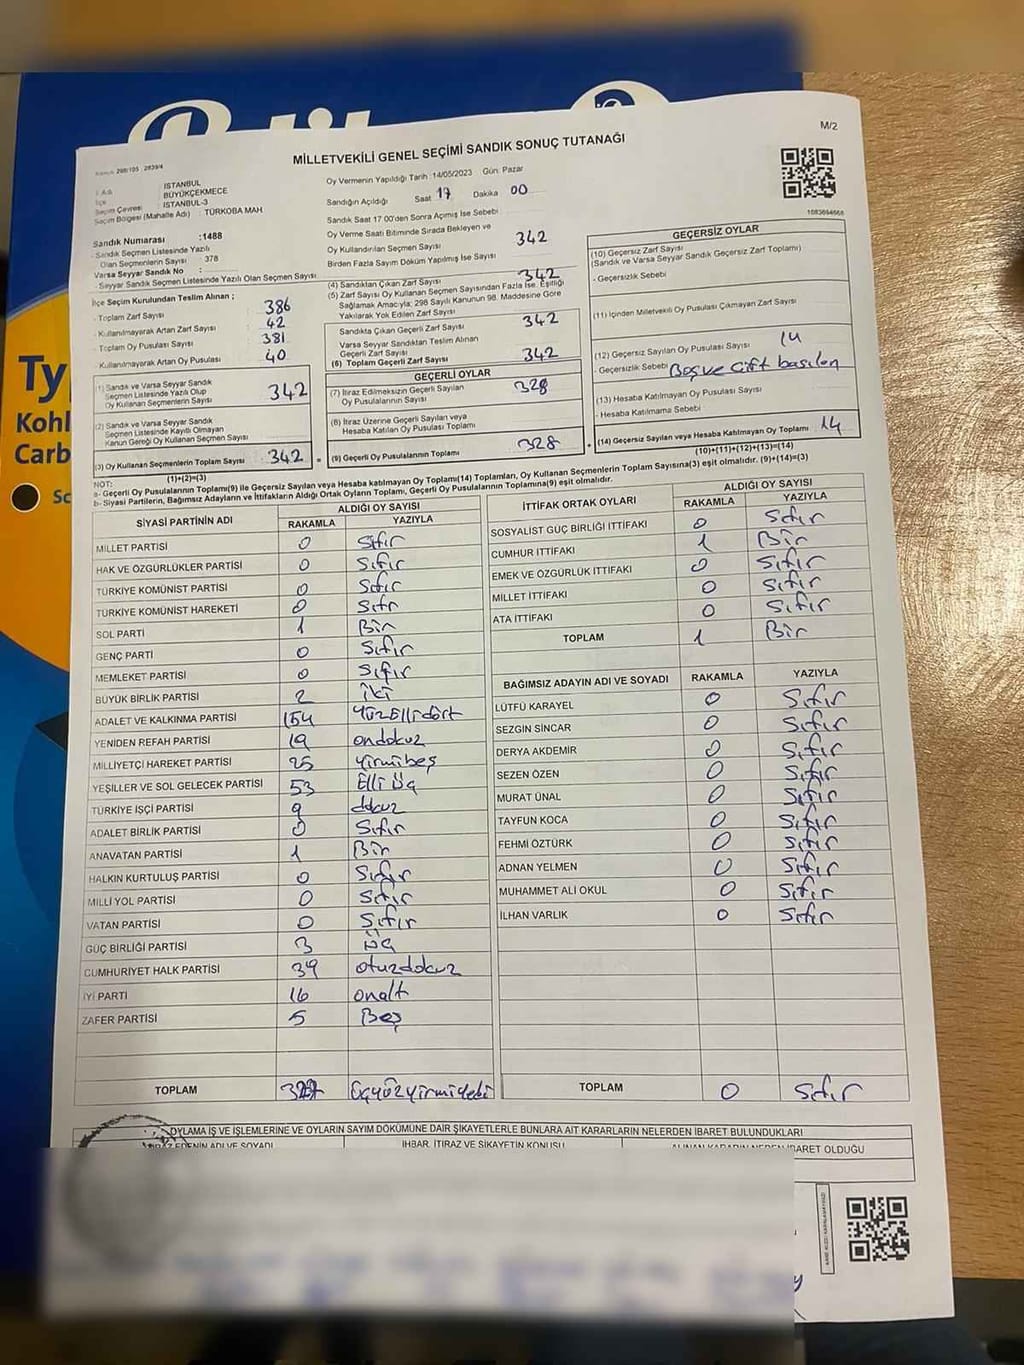 M/2
MİLLETVEKİLİ GENEL SEÇİMİ SANDIK SONUÇ TUTANAĞI
298/105 2839/4
İSTANBUL
İlçe BÜYÜKÇEKMECE
Seçim Çevresi : İSTANBUL-3
Seçim Bölgesi (Mahalle Adı) : TÜRKOBA MAH
Sandık Numarası :1488
- Sandık Seçmen Listesinde Yazılı
Olan Seçmenlerin Sayısı : 378
Varsa Seyyar Sandık No :
- Seyyar Sandık Seçmen Listesinde Yazılı Olan Seçmen Sayısı
Oy Vermenin Yapıldığı Tarih :14/05/2023 Gün: Pazar
Sandığın Açıldığı Saat 17 Dakika 00
Sandık Saat 17 00'den Sonra Açımış İse Sebebi
Oy Verme Saati Bitiminde Sırada Bekleyen ve
Oy Kullandırılan Seçmen Sayısı 342
Birden Fazla Sayım Döküm Yapılmış İse Sayısı
1083694668
İlçe Seçim Kurulundan Teslim Alınan ;
- Toplam Zarf Sayısı 386
- Kullanılmayarak Artan Zarf Sayısı 42
- Toplam Oy Pusulası Sayısı 381
- Kullanılmayarak Artan Oy Pusulası 40
(1) Sandık ve Varsa Seyyar Sandık
Seçmen Listesinde Yazılı Olup
Oy Kullanan Seçmenlerin Sayısı 342
(2) Sandık ve Varsa Seyyar Sandık
Seçmen Listesinde Kayıtlı Olmayan
Kanun Gereği Oy Kullanan Seçmen Sayısı
(3) Oy Kullanan Seçmenlerin Toplam Sayısı 342
(1)+(2)=(3)
(4) Sandıktan Çıkan Zarf Sayısı 342
(5) Zarf Sayısı Oy Kullanan Seçmen Sayısından Fazla İse, Eşitliği
Sağlamak Amacıyla; 298 Sayılı Kanunun 98. Maddesine Göre
Yakılarak Yok Edilen Zarf Sayısı
Sandıkta Çıkan Geçerli Zarf Sayısı 342
Varsa Seyyar Sandıktan Teslim Alınan
Geçerli Zarf Sayısı
(6) Toplam Geçerli Zarf Sayısı 342
GEÇERLİ OYLAR
(7) İtiraz Edilmeksizin Geçerli Sayılan
Oy Pusulalarının Sayısı 328
(8) İtiraz Üzerine Geçerli Sayılan veya
Hesaba Katılan Oy Pusulası Toplamı
(9) Geçerli Oy Pusulalarının Toplamı 328
GEÇERSİZ OYLAR
(10) Geçersiz Zarf Sayısı
(Sandık ve Varsa Seyyar Sandık Geçersiz Zarf Toplamı)
- Geçersizlik Sebebi
(11) İçinden Milletvekili Oy Pusulası Çıkmayan Zarf Sayısı
(12) Geçersiz Sayılan Oy Pusulası Sayısı 14
- Geçersizlik Sebebi Boş ve Çift basılan
(13) Hesaba Katılmayan Oy Pusulası Sayısı
- Hesaba Katılmama Sebebi
(14) Geçersiz Sayılan veya Hesaba Katılmayan Oy Toplamı 14
(10)+(11)+(12)+(13)=(14)
NOT:
a- Geçerli Oy Pusulalarının Toplamı(9) ile Geçersiz Sayılan veya Hesaba katılmayan Oy Pusulası Toplamı(14) Toplamları, Oy Kullanan Seçmenlerin Toplam Sayısına(3) eşit olmalıdır. (9)+(14)=(3)
b- Siyasi Partilerin, Bağımsız Adayların ve İttifakların Aldığı Ortak Oyların Toplamı, Geçerli Oy Pusulalarının Toplamına(9) eşit olmalıdır.
SİYASİ PARTİNİN ADI ALDIĞI OY SAYISI
RAKAMLA YAZIYLA
MİLLET PARTİSİ 0 Sıfır
HAK VE ÖZGÜRLÜKLER PARTİSİ 0 Sıfır
TÜRKİYE KOMÜNİST PARTİSİ 0 Sıfır
TÜRKİYE KOMÜNİST HAREKETİ 0 Sıfr
SOL PARTİ 1 Bir
GENÇ PARTİ 0 Sıfır
MEMLEKET PARTİSİ 0 Sıfır
BÜYÜK BİRLİK PARTİSİ 2 iki
ADALET VE KALKINMA PARTİSİ 154 YüzEllidört
YENİDEN REFAH PARTİSİ 19 ondokuz
MİLLİYETÇİ HAREKET PARTİSİ 25 yirmibeş
YEŞİLLER VE SOL GELECEK PARTİSİ 53 Elli Üç
TÜRKİYE İŞÇİ PARTİSİ 9 dokuz
ADALET BİRLİK PARTİSİ 0 Sıfır
ANAVATAN PARTİSİ 1 Bir
HALKIN KURTULUŞ PARTİSİ 0 Sıfır
MİLLİ YOL PARTİSİ 0 Sıfır
VATAN PARTİSİ 0 Sıfır
GÜÇ BİRLİĞİ PARTİSİ 3 Üç
CUMHURİYET HALK PARTİSİ 39 otuzdokuz
İYİ PARTİ 16 onaltı
ZAFER PARTİSİ 5 Beş
TOPLAM 327 üçyüzyirmiyedi
İTTİFAK ORTAK OYLARI ALDIĞI OY SAYISI
RAKAMLA YAZIYLA
SOSYALİST GÜÇ BİRLİĞİ İTTİFAKI 0 Sıfır
CUMHUR İTTİFAKI 1 Bir
EMEK VE ÖZGÜRLÜK İTTİFAKI 0 Sıfır
MİLLET İTTİFAKI 0 Sıfır
ATA İTTİFAKI 0 Sıfır
TOPLAM 1 Bir
BAĞIMSIZ ADAYIN ADI VE SOYADI RAKAMLA YAZIYLA
LÜTFÜ KARAYEL 0 Sıfır
SEZGİN SİNCAR 0 Sıfır
DERYA AKDEMİR 0 Sıfır
SEZEN ÖZEN 0 Sıfır
MURAT ÜNAL 0 Sıfır
TAYFUN KOCA 0 Sıfır
FEHMİ ÖZTÜRK 0 Sıfır
ADNAN YELMEN 0 Sıfır
MUHAMMET ALİ OKUL 0 Sıfır
İLHAN VARLIK 0 Sıfır
TOPLAM 0 Sıfır
OYLAMA İŞ VE İŞLEMLERİNE VE OYLARIN SAYIM DÖKÜMÜNE DAİR ŞİKAYETLERLE BUNLARA AİT KARARLARIN NELERDEN İBARET BULUNDUKLARI
İTİRAZ EDENİN ADI VE SOYADI İHBAR, İTİRAZ VE ŞİKAYETİN KONUSU ALINAN KARARIN NEDEN İBARET OLDUĞU
Ty
Kohl
Carb
Sc